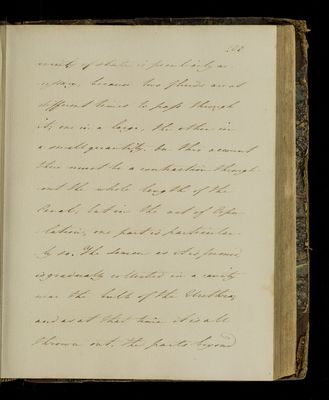 ments of state is peculiarly ne-
cessary, because two fluids are at
different times to pass through
it; one in a large, the other in
a small quantity. On this account
there must be a contraction through-
out the whole length of the
Canal; but in the act of Copu
lation, one part is particular-
ly so. The semen as it is formed
is gradually collected in a cavity
near the bulb of the Urethra,
and as at that time it is all
thrown out, the parts beyond